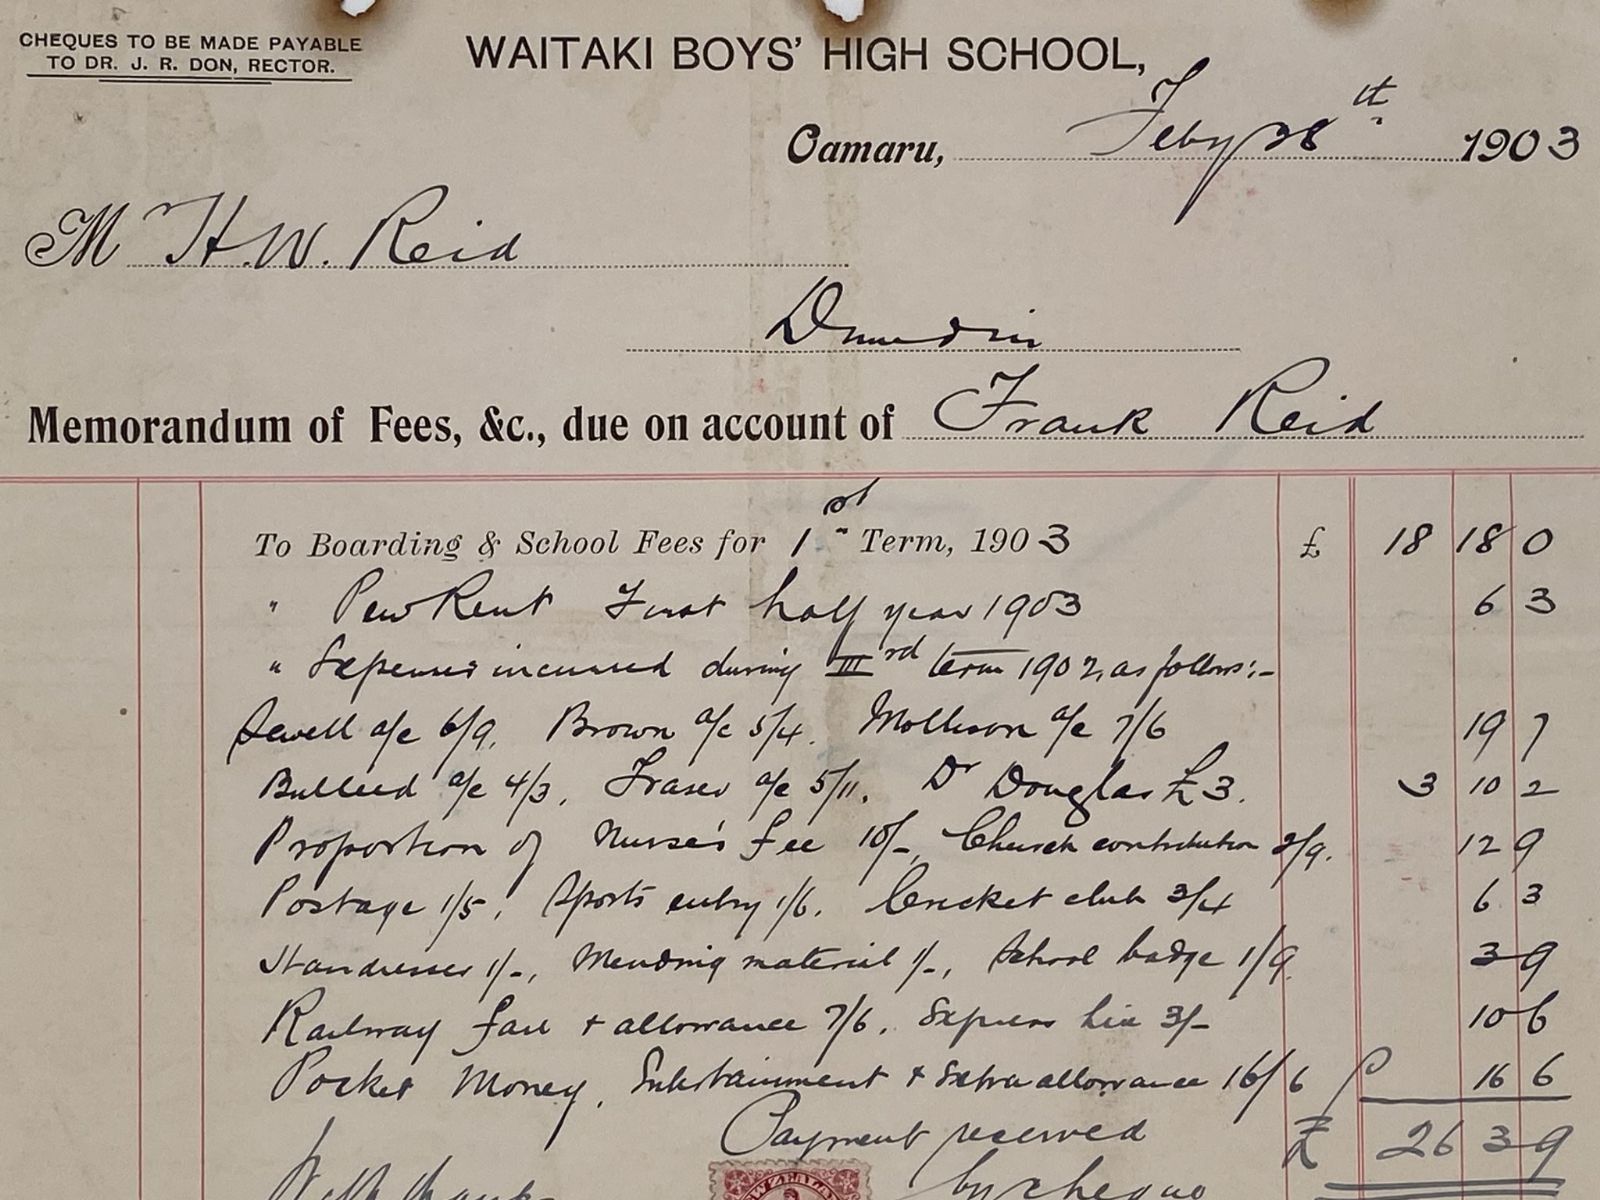 CHEQUES TO BE MADE PAYABLE
TO DR. J. R. DON, RECTOR.
WAITAKI BOYS' HIGH SCHOOL,
Oamaru, Feby 28th 1903
M H. W. Reid
Dunedin
Memorandum of Fees, &c., due on account of Frank Reid
To Boarding & School Fees for 1st Term, 1903 £ 18 18 0
" Pew Rent First half year 1903 6 3
" Expenses incurred during IIIrd term 1902, as follows:-
Sewell a/c 6/9. Brown a/c 5/4. Mollison a/c 7/6 19 7
Bulleid a/c 4/3, Fraser a/c 5/11. Dr Douglas £3. 3 10 2
Proportion of Nurse's fee 10/-, Church contribution 2/9. 12 9
Postage 1/5, Sports entry 1/6. Cricket club 3/4 6 3
Hairdresser 1/-, Mending material 1/-, School badge 1/9 3 9
Railway fare + allowance 7/6. Express hire 3/- 10 6
Pocket Money, Entertainment + Extra allowance 16/6 16 6
Payment received £ 26 3 9
With thanks by cheque
NEW ZEALAND